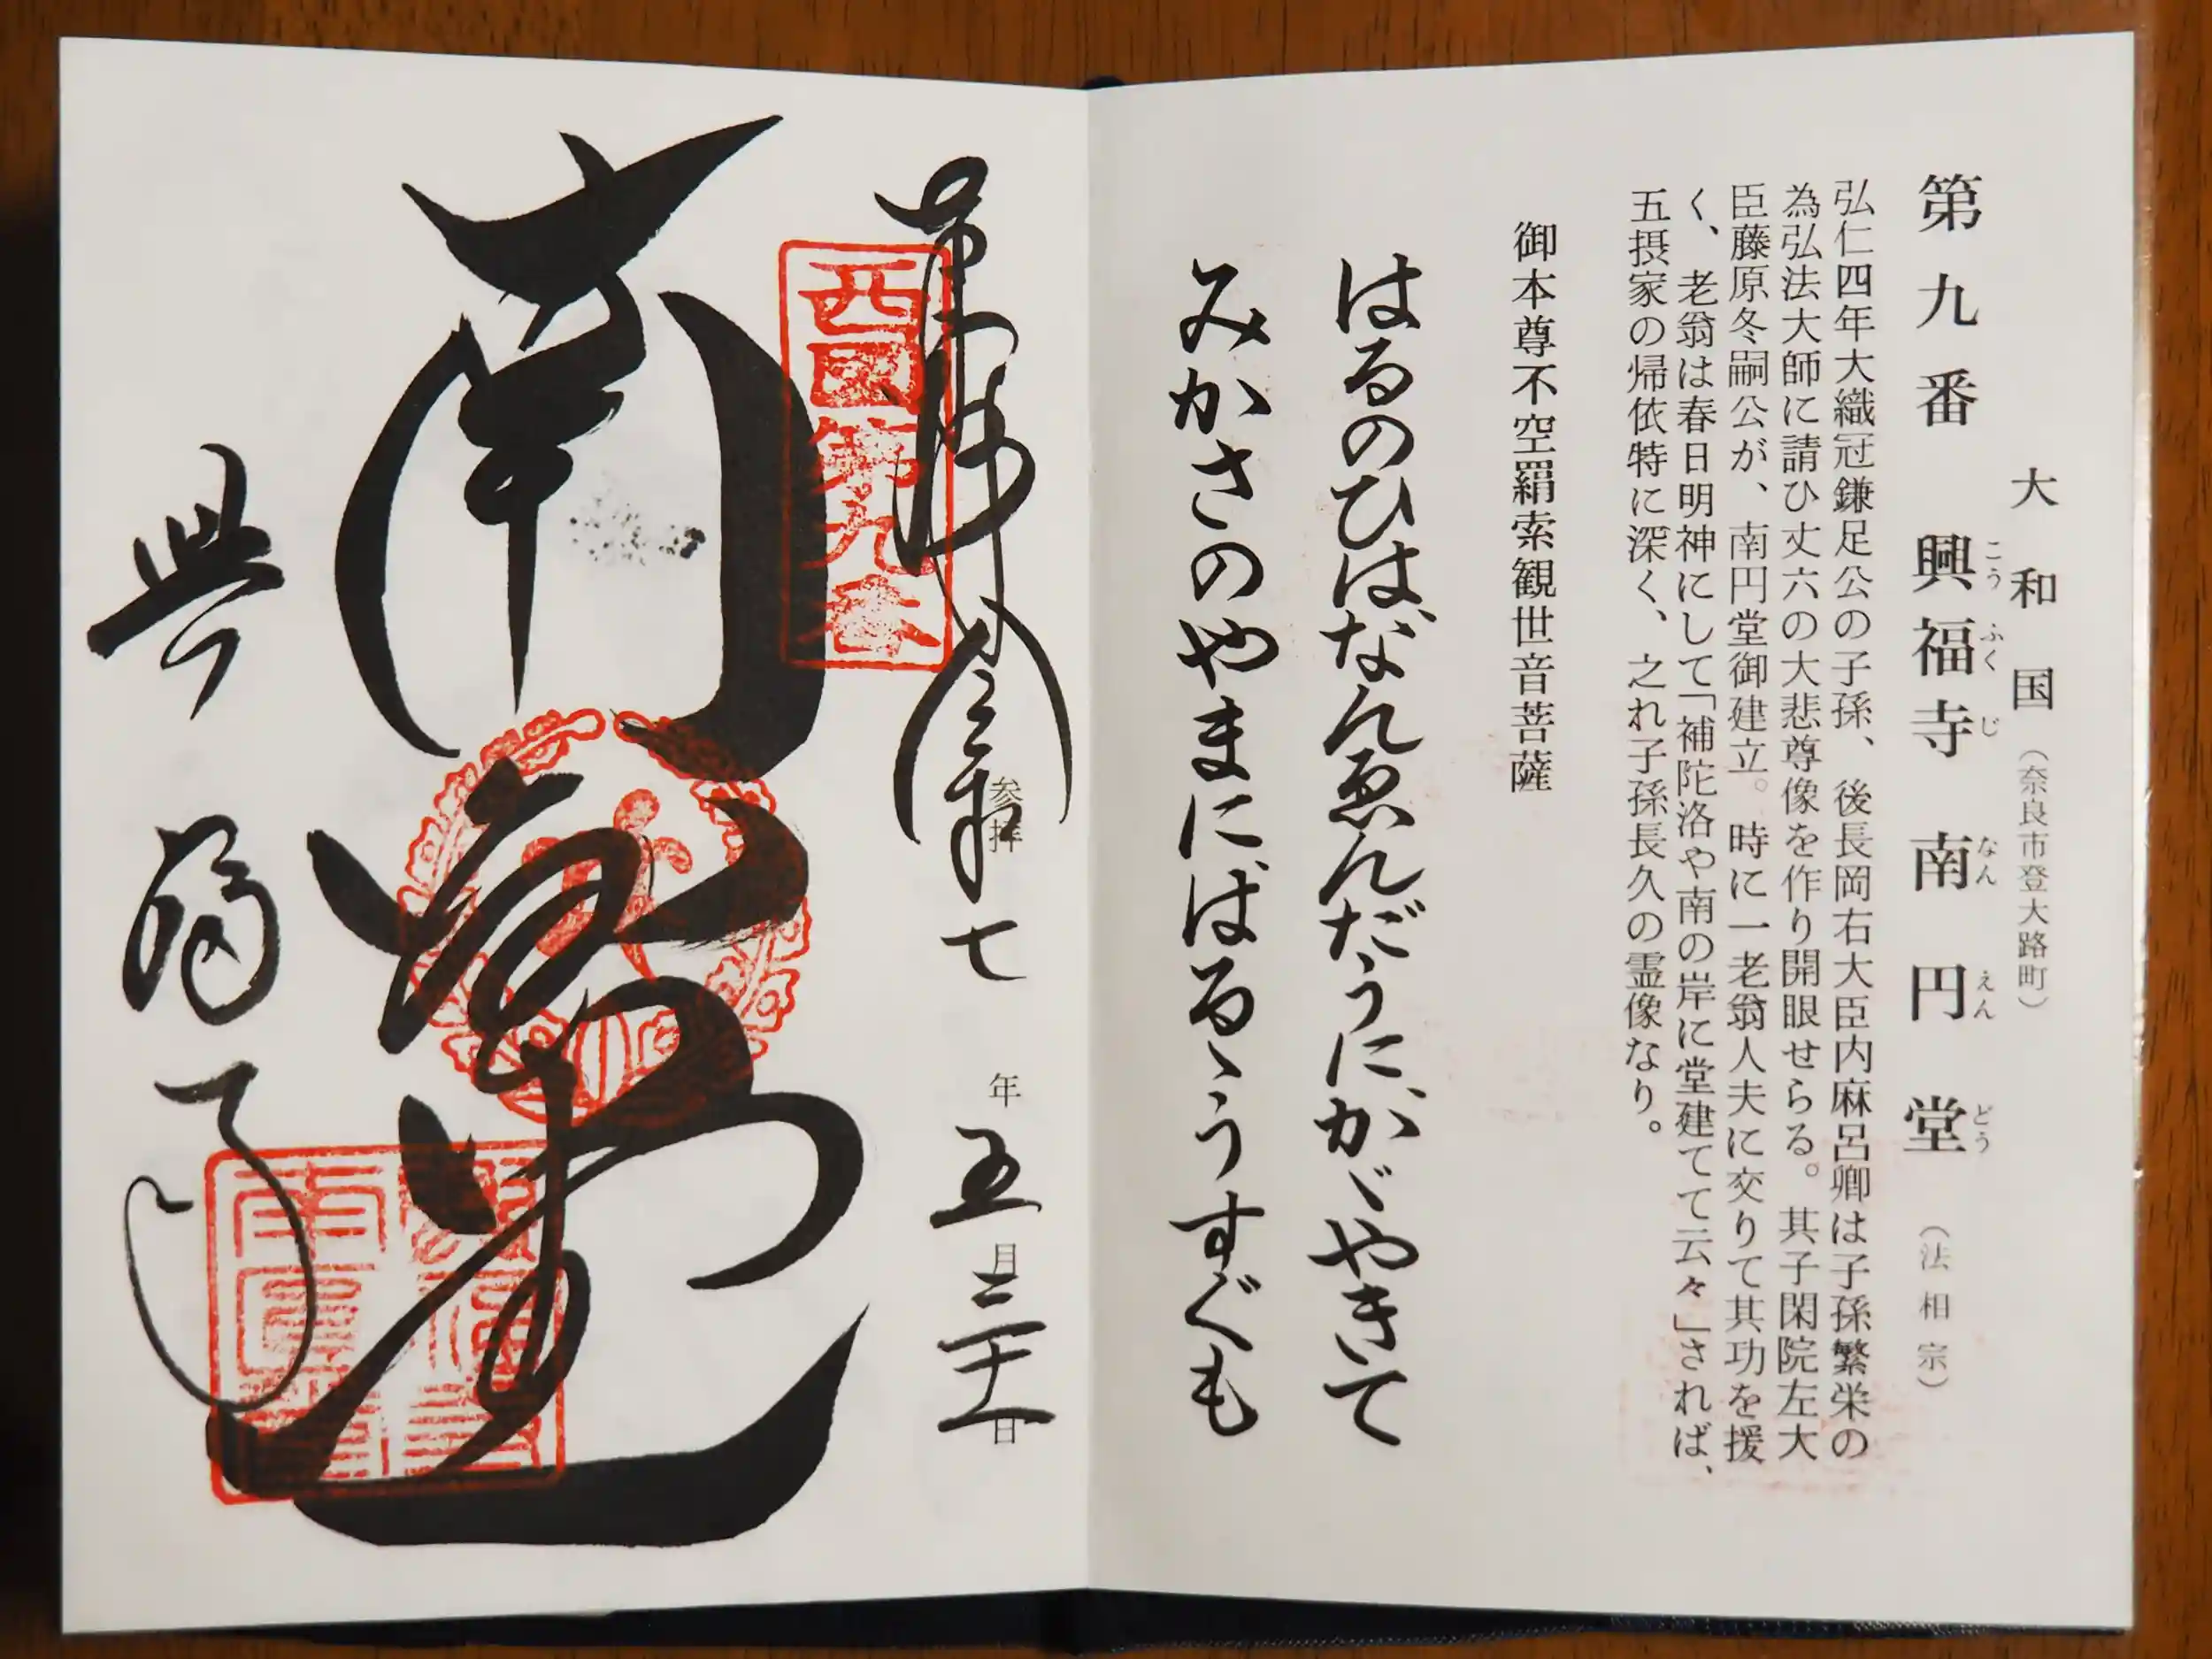 大和国（奈良市登大路町）
第九番 興福寺 南円堂（法相宗）
こうふくじ なんえんどう
弘仁四年大織冠鎌足公の子孫、後長岡右大臣内麻呂卿は子孫繁栄の
為弘法大師に請ひ丈六の大悲尊像を作り開眼せらる。其子閑院左大
臣藤原冬嗣公が、南円堂御建立。時に一老翁人夫に交りて其功を援
く、老翁は春日明神にして「補陀洛や南の岸に堂建てて云々」されば、
五摂家の帰依特に深く、之れ子孫長久の霊像なり。
御本尊不空羂索観世音菩薩
はるのひは、なんゑんだうに、かゞやきて
みかさのやまに、はるゝうすぐも
参拝
七年五月三十一日
西國第九番
南
堂
興福寺